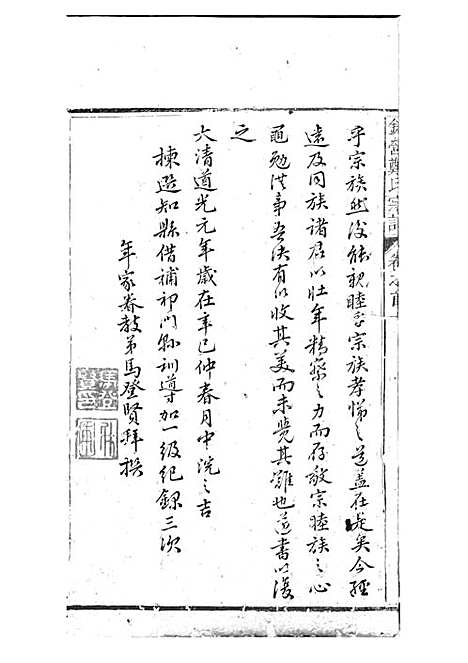 乎宗族然後能親睦乎宗族孝悌之道蓋在是矣今經
遠及同族諸君以壯年精ंग之力而存敬宗睦族之心
黽勉洪事吾決有以收其美而未覺其難也遂書以復
之
大清道光元年歲在辛巳仲春月中浣之吉
揀選知縣借補祁門縣訓導加一級紀錄三次
年家眷教弟馬登賢拜撰
鄭氏宗譜
卷之首